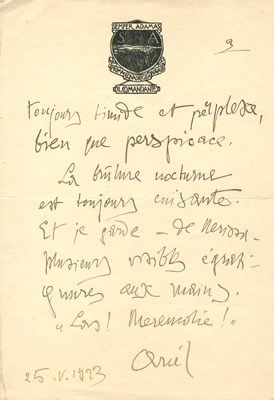 SEMPER ADAMAS
S A
IL COMANDANTE
9
toujours timide et perplexe,
bien que perspicace.
La brûlure nocturne
est toujours cuisante.
Et je garde – de
plusieurs visibles égrati-
gnures aux mains.
"Las!
Ariel
25.V.1923